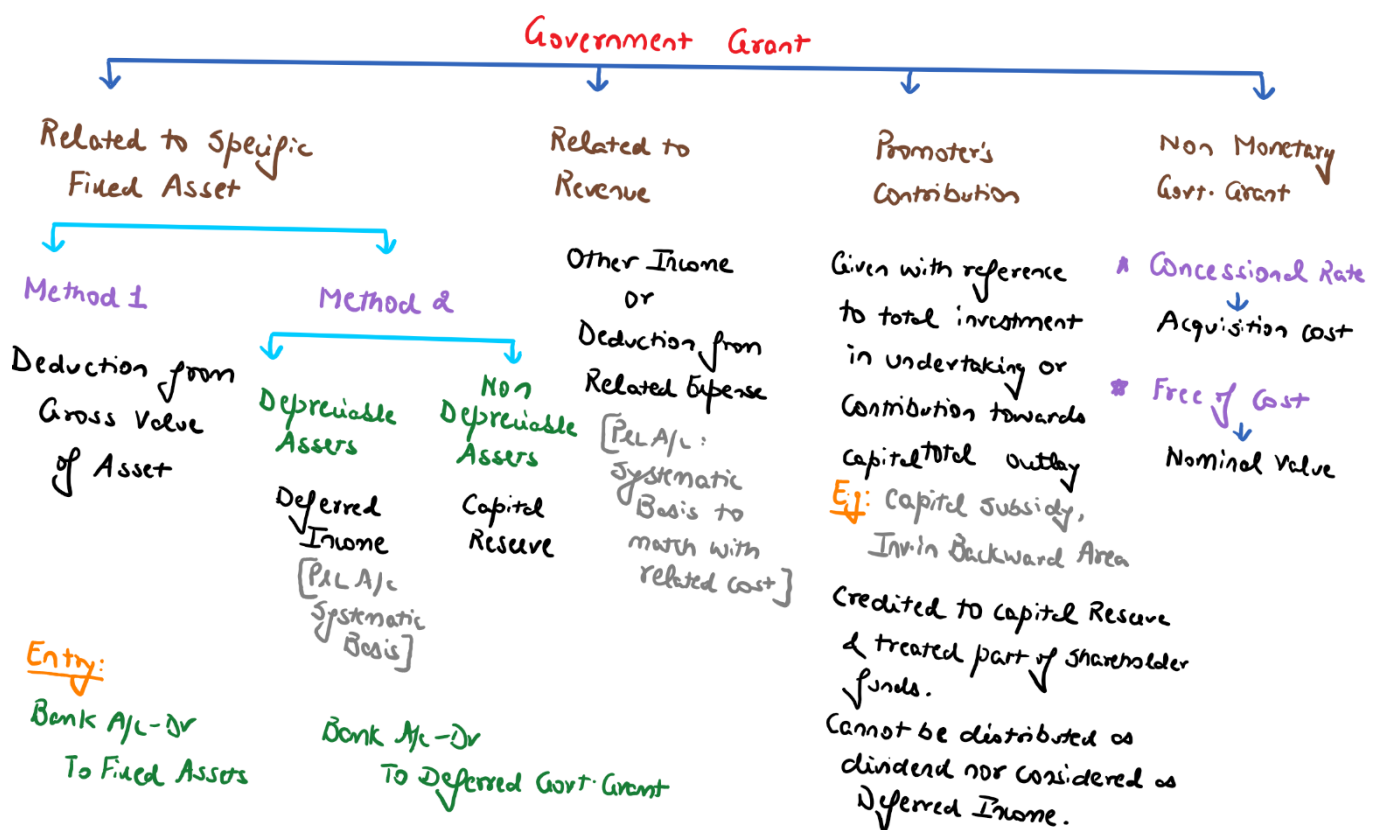 Government Grant
Related to Specific
Fixed Asset
Method 1
Deduction from
Gross Value
of Asset
Method 2
Depreciable
Assets
Deferred
Income
[P&L A/c
Systematic
Basis]
Non
Depreciable
Assets
Capital
Reserve
Entry:
Bank A/c-Dr
To Fixed Assets
Bank A/c-Dr
To Deferred Govt. Grant
Related to
Revenue
Other Income
or
Deduction from
Related Expense
[P&L A/c:
Systematic
Basis to
match with
related cost]
Promoter's
Contribution
Given with reference
to total investment
in undertaking or
Contribution towards
capital total outlay
Eg: Capital Subsidy,
Inv.in Backward Area
Credited to Capital Reserve
& treated part of shareholder
funds.
Cannot be distributed as
dividend nor considered as
Deferred Income.
Non Monetary
Govt. Grant
* Concessional Rate
Acquisition cost
* Free of Cost
Nominal Value